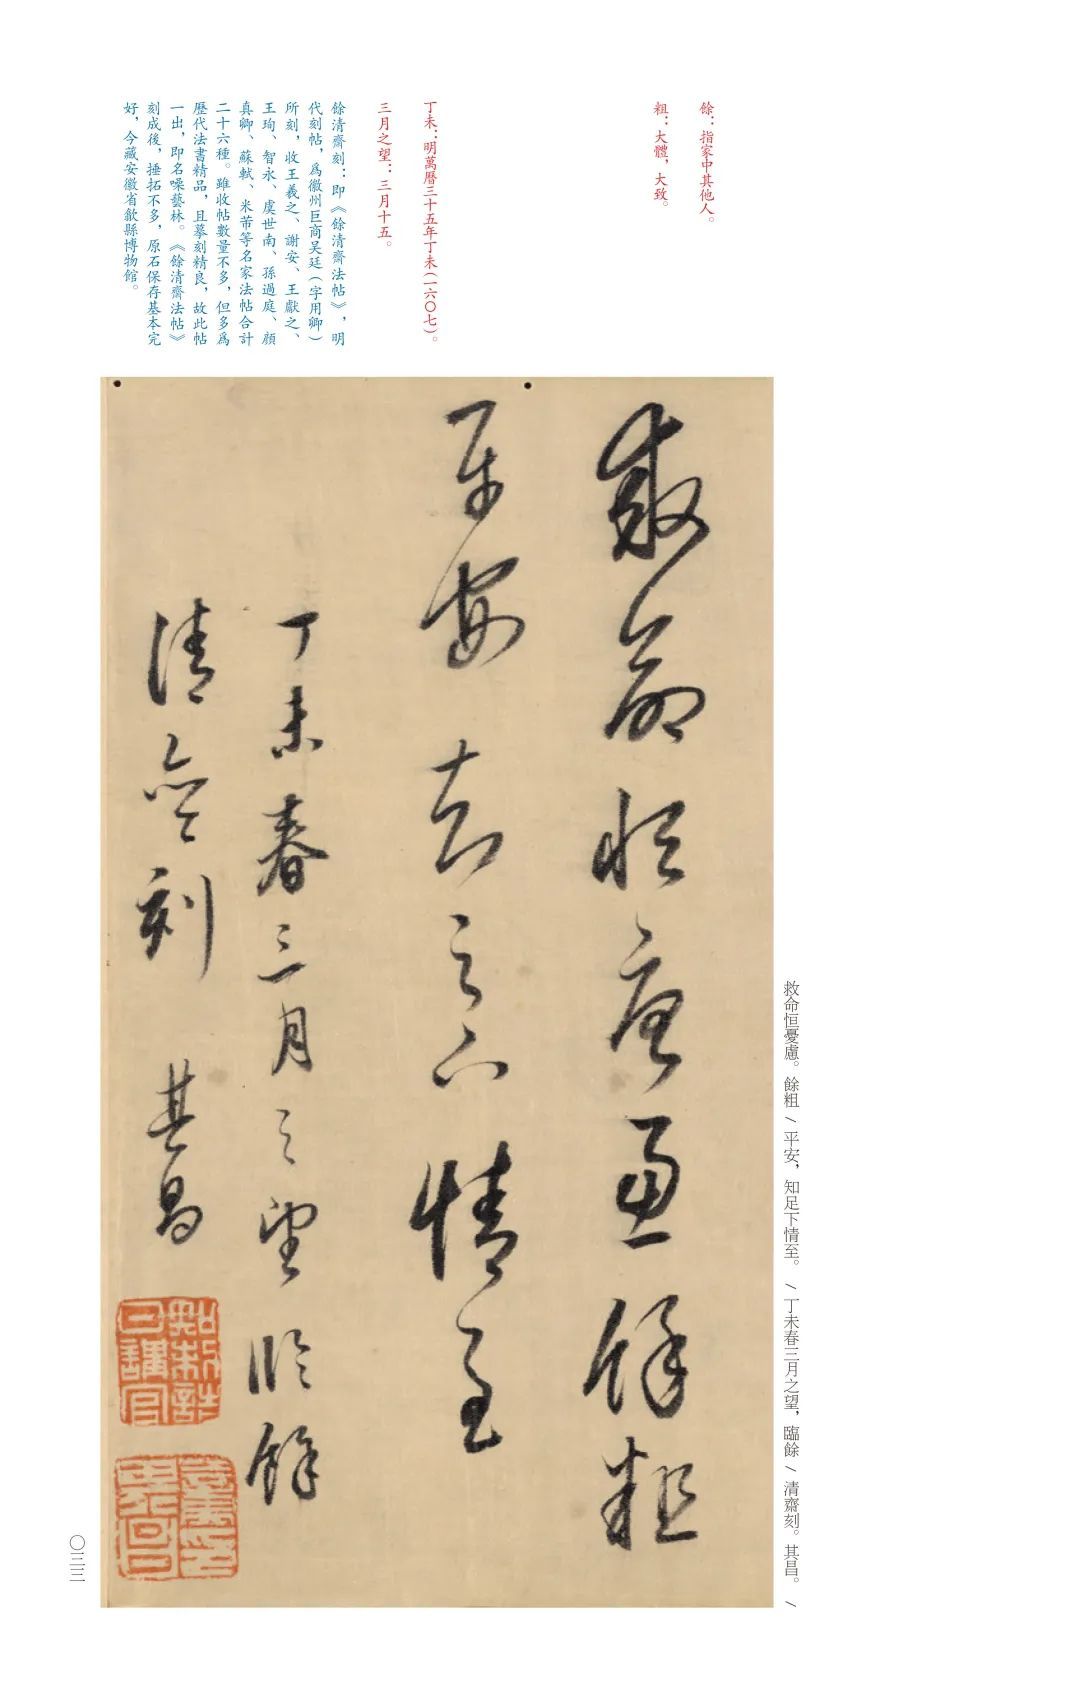 餘：指家中其他人。
粗：大體，大致。
丁未：明萬曆三十五年丁未（一六〇七）。
三月之望：三月十五。
餘清齋刻：即《餘清齋法帖》，明
代刻帖，爲徽州巨商吴廷（字用卿）
所刻，收王羲之、謝安、王獻之、
王珣、智永、虞世南、孫過庭、顔
真卿、蘇軾、米芾等名家法帖合計
二十六種。雖收帖數量不多，但多爲
歷代法書精品，且摹刻精良，故此帖
一出，即名噪藝林。《餘清齋法帖》
刻成後，捶拓不多，原石保存基本完
好，今藏安徽省歙縣博物館。
救命恒憂慮餘粗
平安知足下情至
丁未春三月之望臨餘
清齋刻 其昌
知制誥日講官
救命恒憂慮。餘粗/平安，知足下情至。/丁未春三月之望，臨餘/清齋刻。其昌。/
〇三三